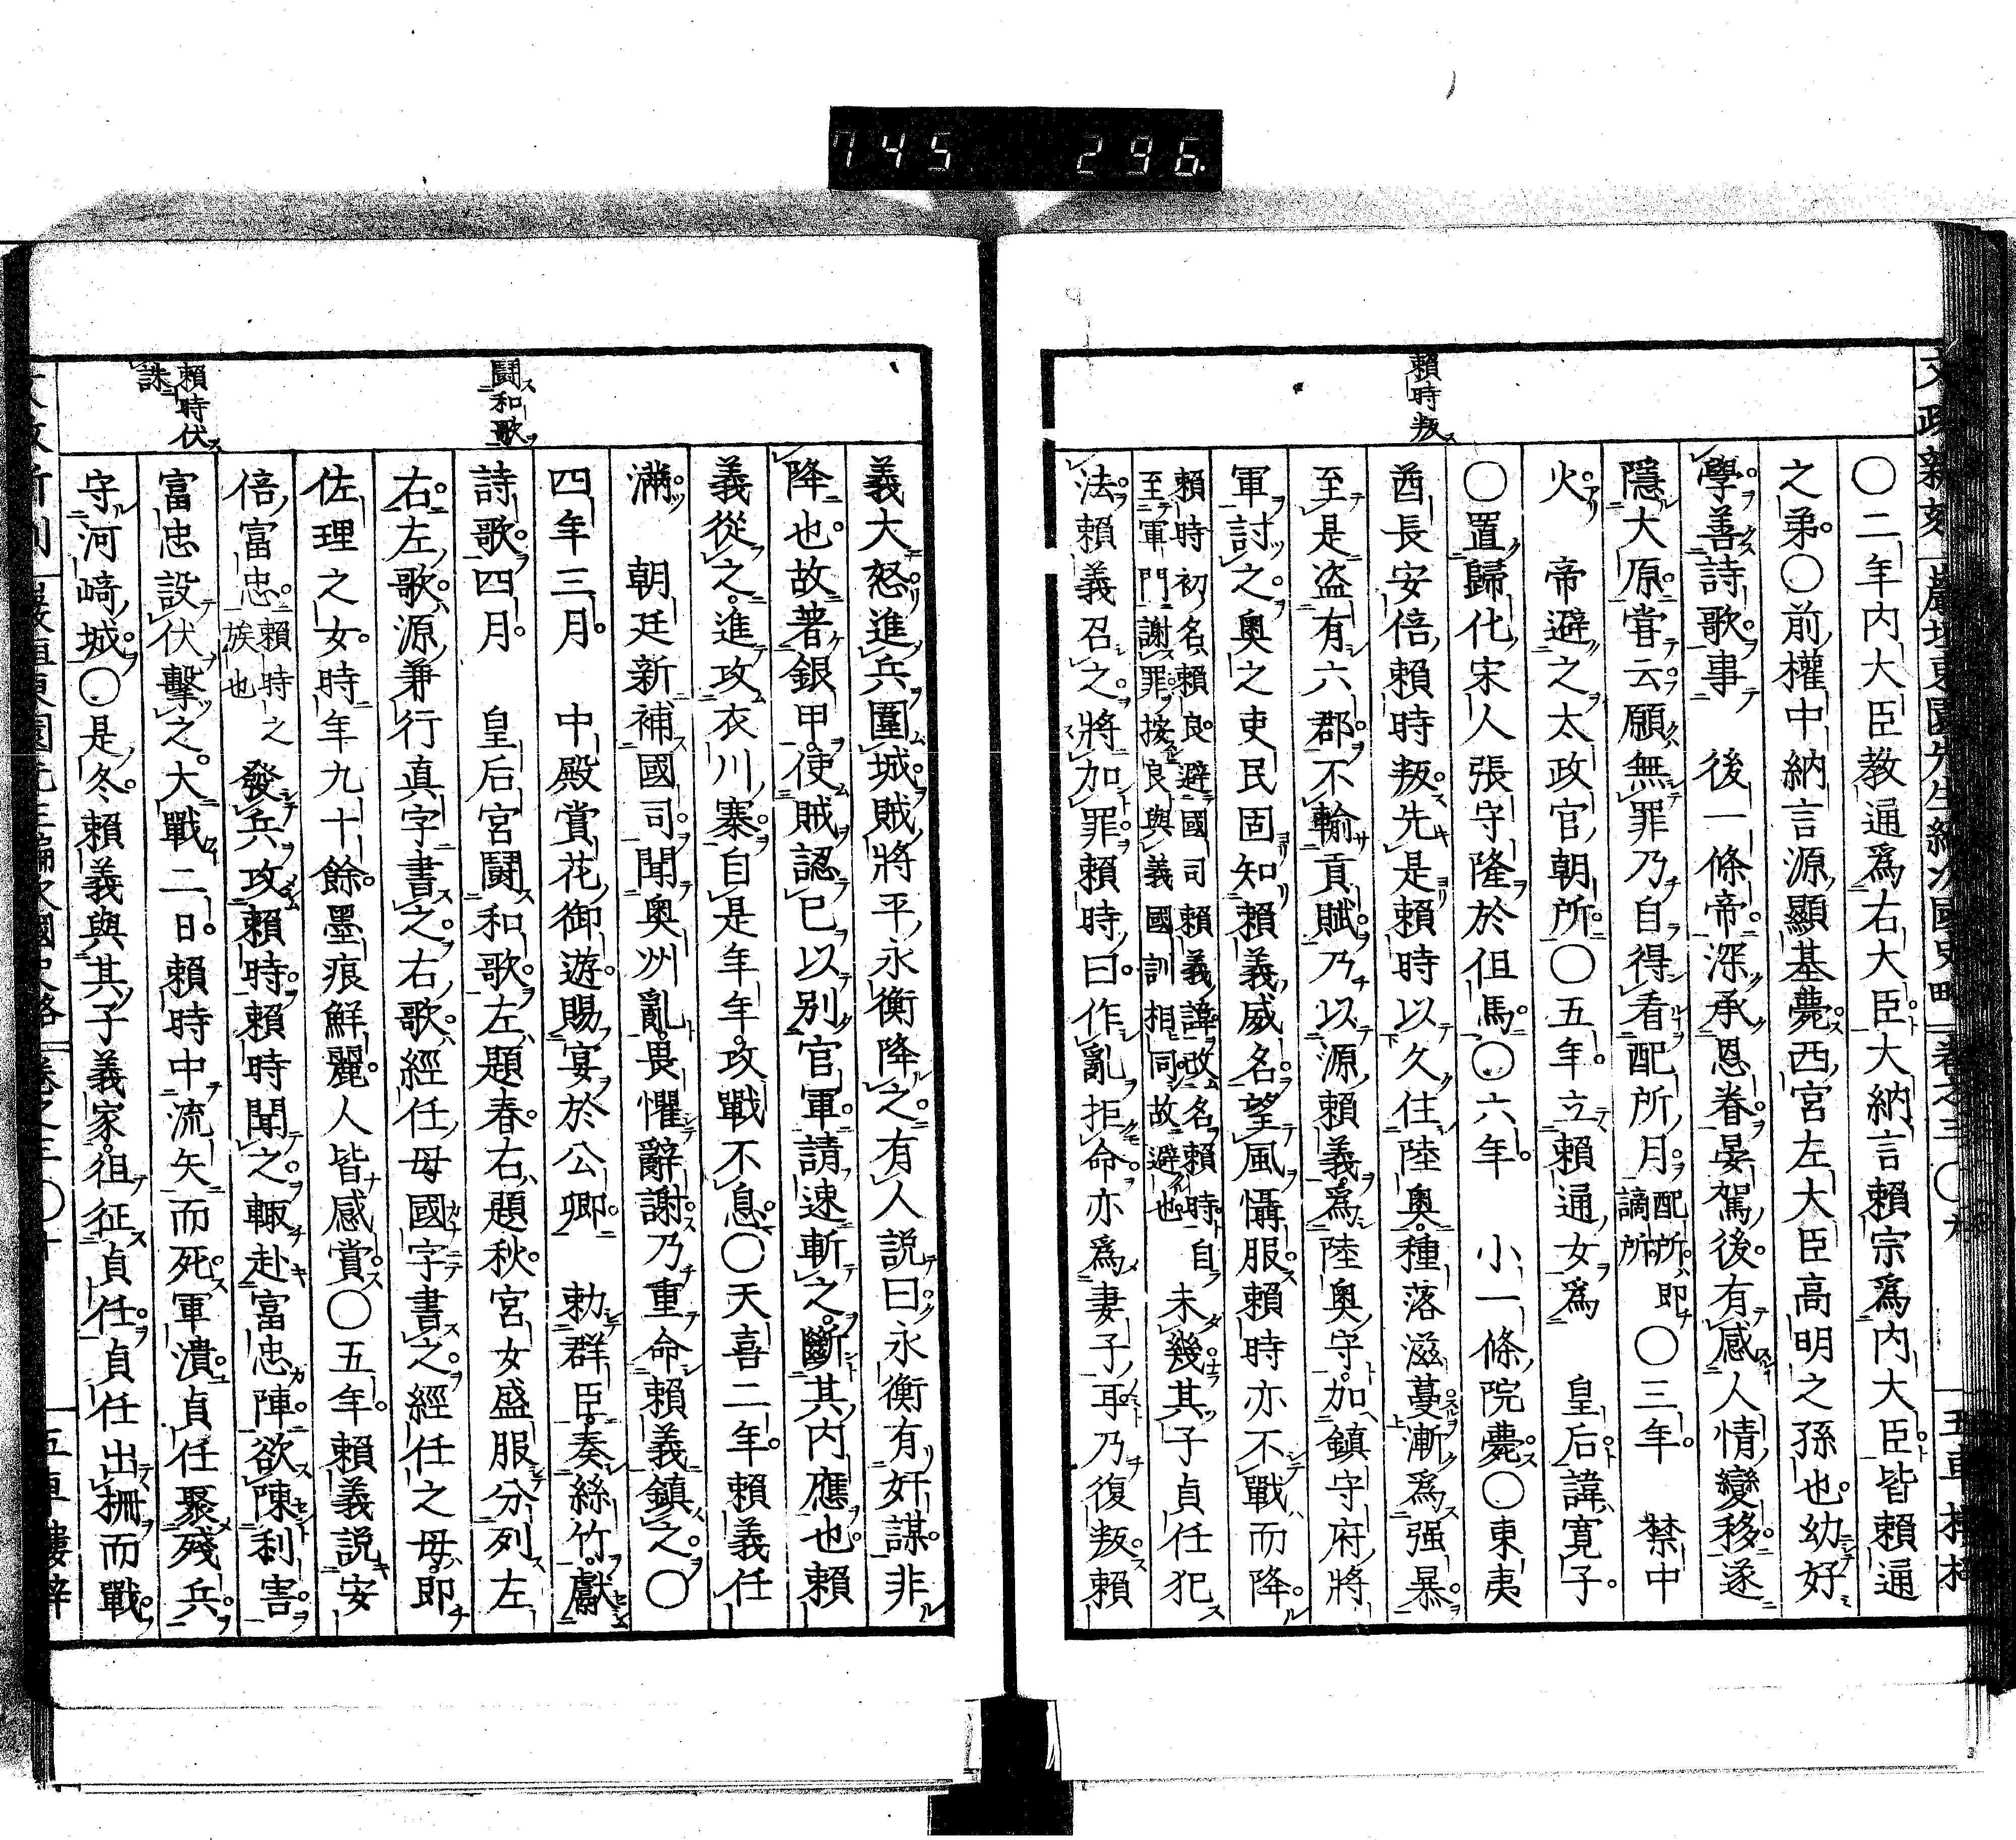 745 296.
賴時叛
○二年内大臣教通爲右大臣大納言賴宗爲内大臣皆賴通
之弟○前權中納言源顯基薨西宮左大臣高明之孫也幼好
學善詩歌事 後一條帝深承恩眷晏駕後有感人情變移遂
隱大原嘗云願無罪乃自得看配所月配所即謫所○三年 禁中
火 帝避之太政官朝所○五年立賴通女爲 皇后諱寛子
○置歸化宋人張守隆於但馬○六年 小一條院薨○東夷
酋長安倍賴時叛先是賴時以久住陸奧種落滋蔓漸爲强暴
至是盗有六郡不輸貢賦乃以源賴義爲陸奧守加鎮守府將
軍討之奧之吏民固知賴義威名望風懾服賴時亦不戰而降
賴時初名賴良避國司賴義諱改名賴時自
至軍門謝罪按良與義國訓相同故避也
未幾其子貞任犯
法賴義召之將加罪賴時曰作亂拒命亦爲妻子耳乃復叛賴
鬪和歌
賴時伏
誅
義大怒進兵圍城賊將平永衡降之有人説曰永衡有奸謀非
降也故著銀甲使賊認已以别官軍請速斬之斷其内應也賴
義從之進攻衣川寨自是年年攻戰不息○天喜二年賴義任
滿 朝廷新補國司聞奧州亂畏懼辭謝乃重命賴義鎮之○
四年三月 中殿賞花御遊賜宴於公卿 勅群臣奏絲竹獻
詩歌四月 皇后宮鬪和歌左題春右題秋宮女盛服分列左
右左歌源兼行真字書之右歌經任母國字書之經任之母即
佐理之女時年九十餘墨痕鮮麗人皆感賞○五年賴義説安
倍富忠賴時之族也發兵攻賴時賴時聞之輙赴富忠陣欲陳利害
富忠設伏擊之大戰二日賴時中流矢而死軍潰貞任聚殘兵
守河崎城○是冬賴義與其子義家徂征貞任貞任出柵而戰